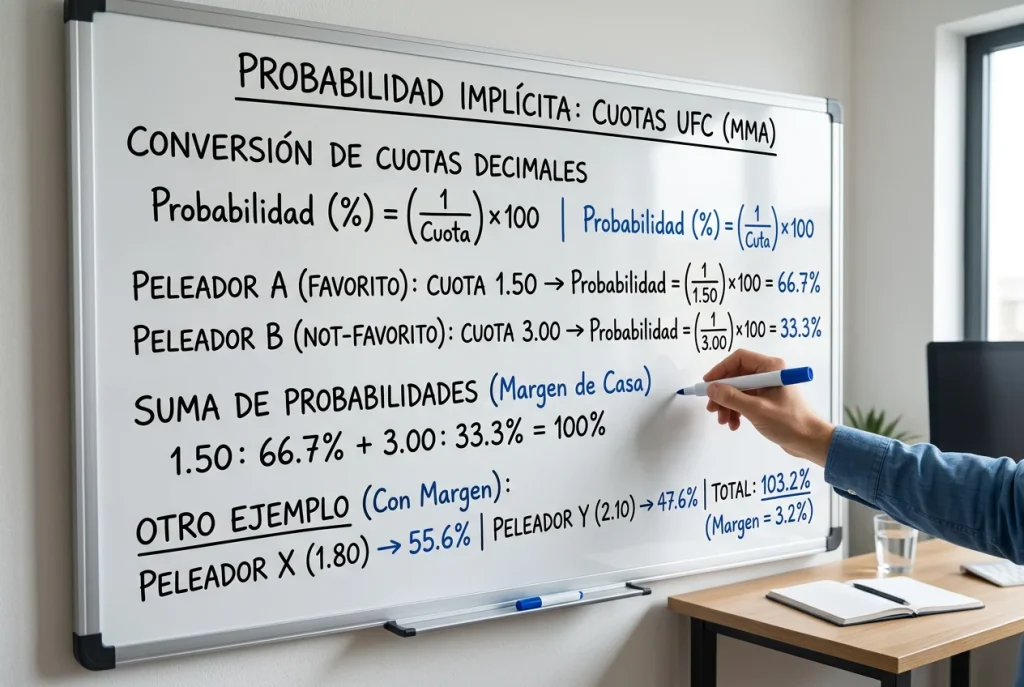 PROBABILIDAD IMPLÍCITA: CUOTAS UFC (MMA)
CONVERSIÓN DE CUOTAS DECIMALES
Probabilidad (%) = (1/Cuota) × 100 | Probabilidad (%) = (1/Cuta) × 100
PELEADOR A (FAVORITO): CUOTA 1.50 → Probabilidad = (1/1.50) × 100 = 66.7%
PELEADOR B (NOT-FAVORITO): CUOTA 3.00 → Probabilidad = (1/3.00) × 100 = 33.3%
SUMA DE PROBABILIDADES (Margen de Casa)
1.50: 66.7% + 3.00: 33.3% = 100%
OTRO EJEMPLO (Con Margen):
PELEADOR X (1.80) → 55.6% | PELEADOR Y (2.10) → 47.6% | TOTAL: 103.2%
(Margen = 3.2%)